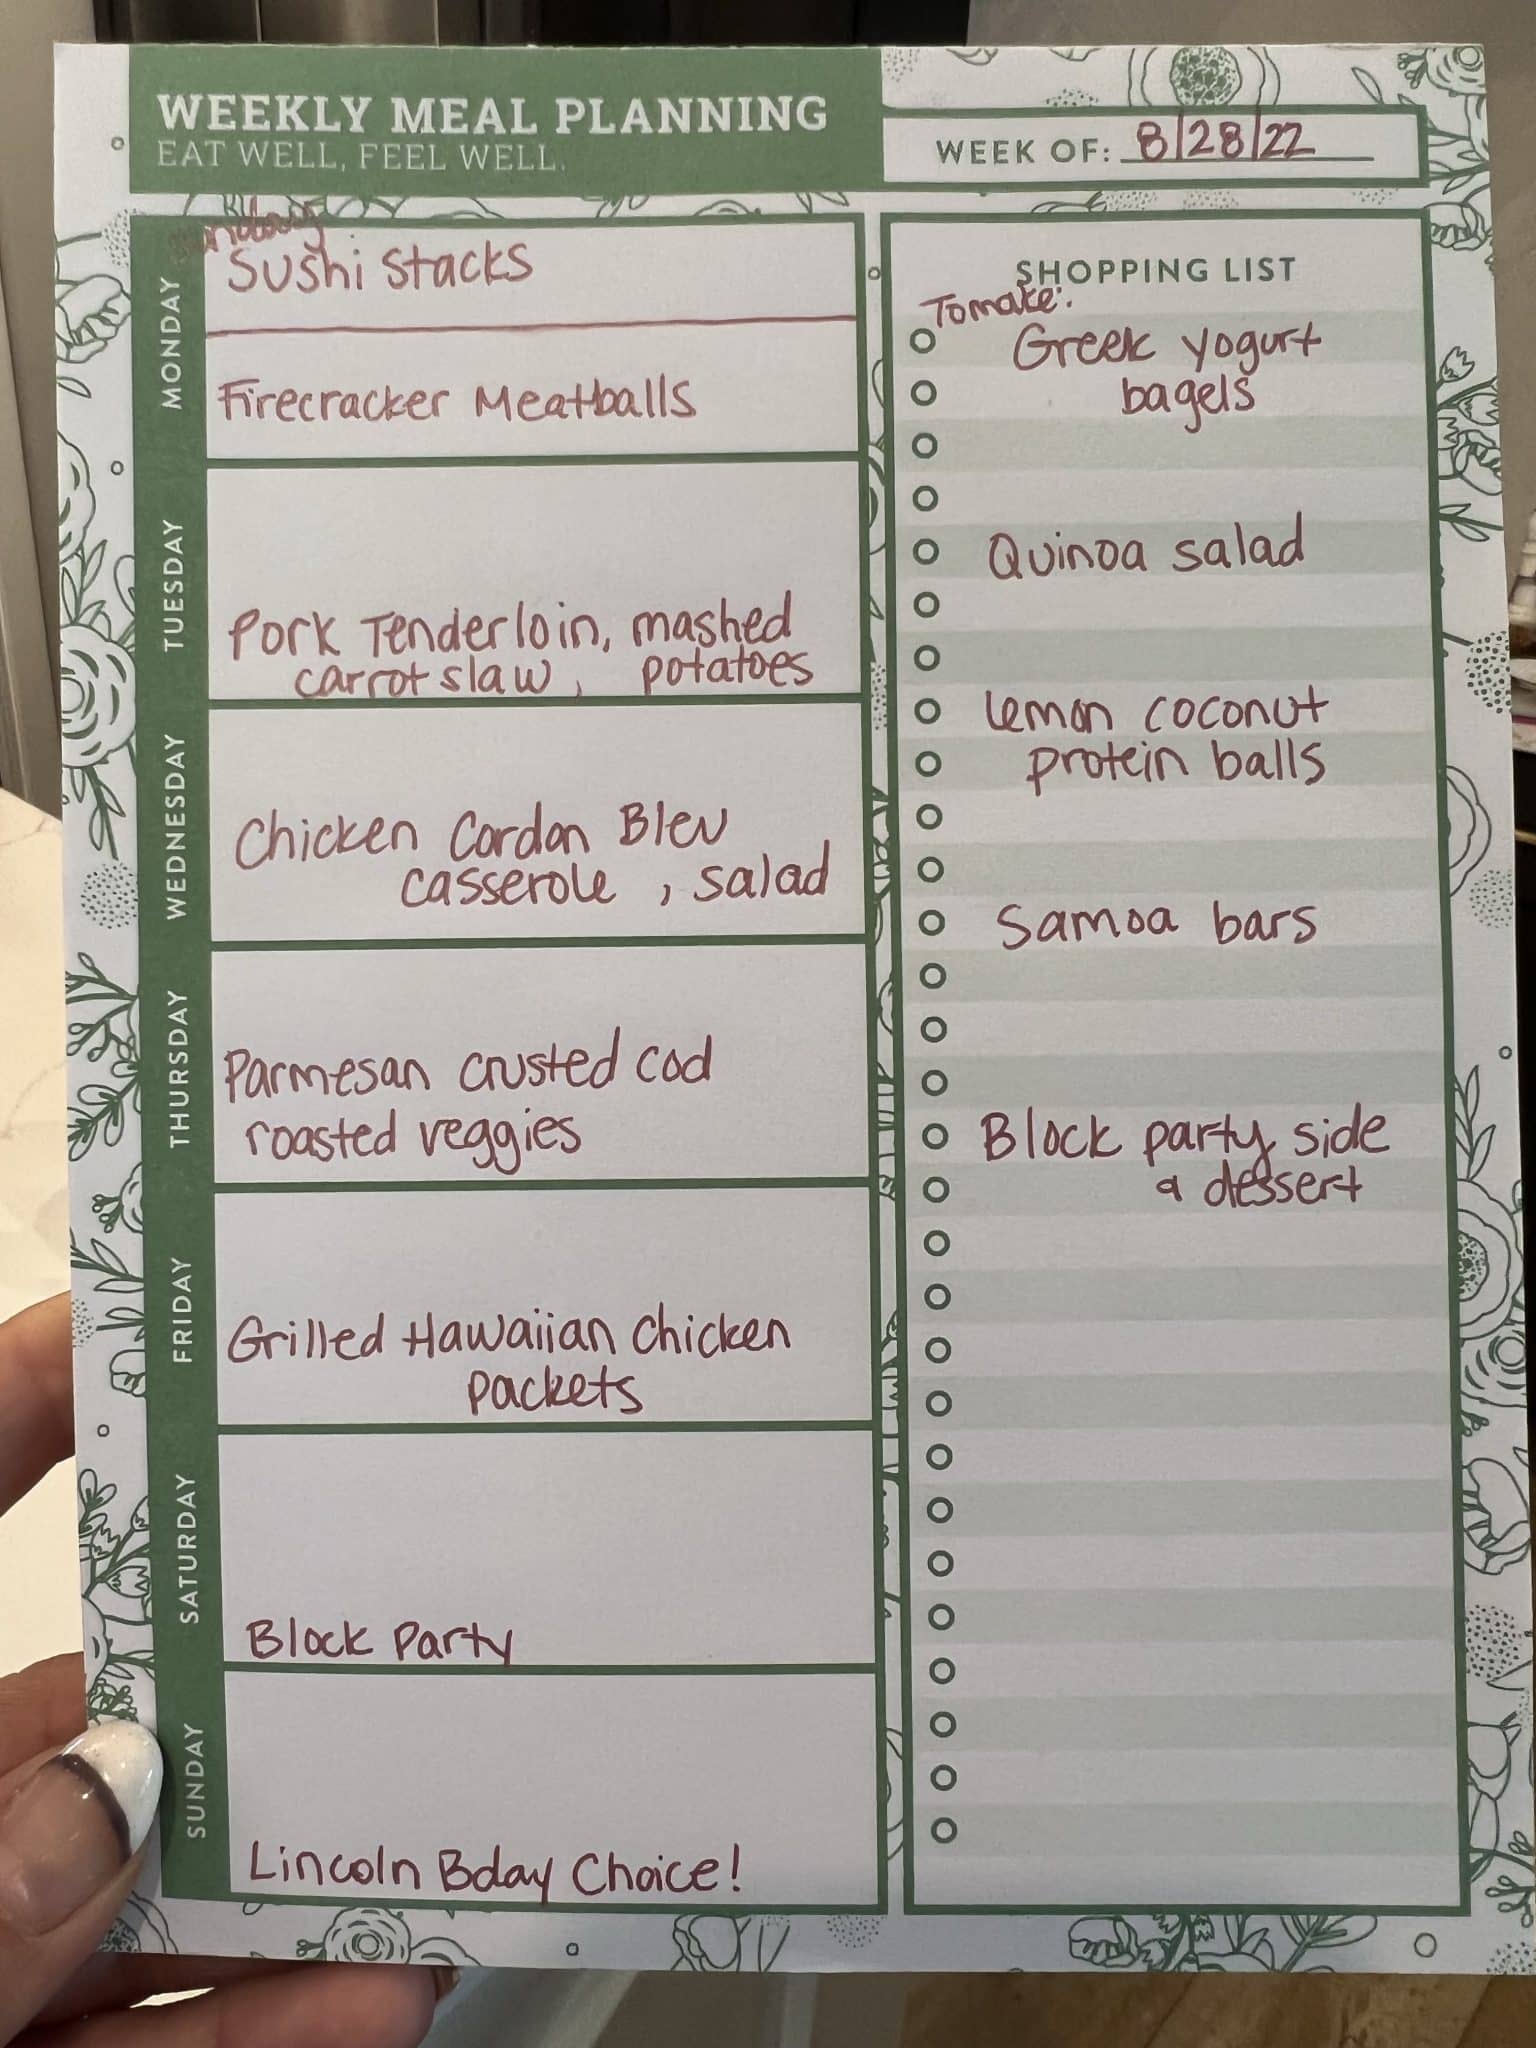 WEEKLY MEAL PLANNING
EAT WELL, FEEL WELL.
WEEK OF: 8/28/22
Sunday
Sushi stacks
MONDAY
Firecracker Meatballs
TUESDAY
Pork Tenderloin, mashed
carrot slaw, potatoes
WEDNESDAY
Chicken Cordon Bleu
casserole, salad
THURSDAY
Parmesan crusted cod
roasted veggies
FRIDAY
Grilled Hawaiian Chicken
packets
SATURDAY
Block Party
SUNDAY
Lincoln Bday Choice!
SHOPPING LIST
To make:
Greek yogurt
bagels
Quinoa salad
Lemon coconut
protein balls
Samoa bars
Block party side
& dessert